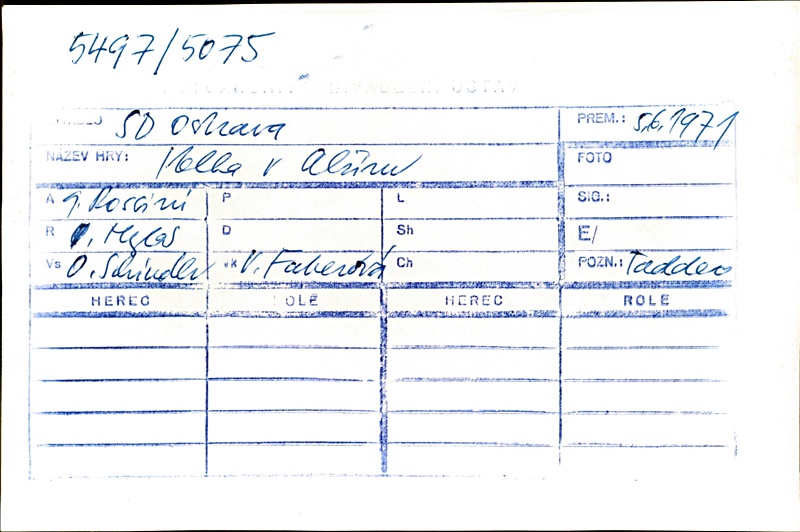 5497/5075
DIVADELNÍ ÚSTAV
SD Ostrava PREM.: 5.6.1971
NÁZEV HRY: Italka v Alžíru FOTO
A G. Rossini P L SIG.:
R D Sh E/
Vs O. Schindler vk V. Fáberová Ch POZN.: Taddeo
HEREC ROLE HEREC ROLE